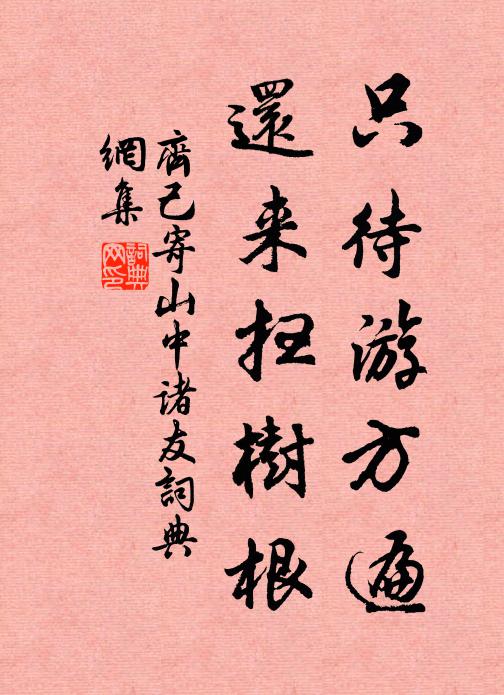 只待游方遍
還来扫樹根
齊己寄山中諸友詞典
網集
詞典
网印